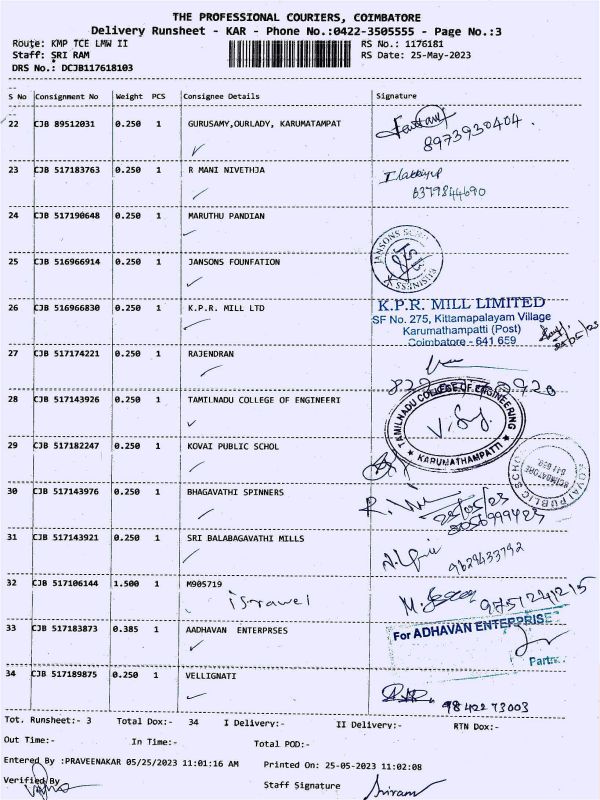 THE PROFESSIONAL COURIERS, COIMBATORE
Delivery Runsheet - KAR - Phone No.:0422-3505555 - Page No.:3
Route: KMP TCE LMW II RS No.: 1176181
Staff: SRI RAM RS Date: 25-May-2023
DRS No.: DCJB117618103
S No Consignment No Weight PCS Consignee Details Signature
22 CJB 89512031 0.250 1 GURUSAMY,OURLADY, KARUMATAMPAT
8973930404.
23 CJB 517183763 0.250 1 R MANI NIVETHJA
6379844690
24 CJB 517190648 0.250 1 MARUTHU PANDIAN
25 CJB 516966914 0.250 1 JANSONS FOUNFATION
JANSONS BUSINESS
26 CJB 516966830 0.250 1 K.P.R. MILL LTD
K.P.R. MILL LIMITED
SF No. 275, Kittamapalayam Village
Karumathampatti (Post)
Coimbatore - 641 659
27 CJB 517174221 0.250 1 RAJENDRAN
28 CJB 517143926 0.250 1 TAMILNADU COLLEGE OF ENGINEERI
TAMILNADU COLLEGE OF ENGINEERING
KARUMATHAMPATTI
29 CJB 517182247 0.250 1 KOVAI PUBLIC SCHOL
KOVAI PUBLIC
COIMBATORE
30 CJB 517143976 0.250 1 BHAGAVATHI SPINNERS
25/05/23
8056999423
31 CJB 517143921 0.250 1 SRI BALABAGAVATHI MILLS
9629433792
32 CJB 517106144 1.500 1 M905719
9751241215
33 CJB 517183873 0.385 1 AADHAVAN ENTERPRSES
For ADHAVAN ENTERPRISE
34 CJB 517189875 0.250 1 VELLIGNATI
9842273003
Tot. Runsheet:- 3 Total Dox:- 34 I Delivery:- II Delivery:- RTN Dox:-
Out Time:- In Time:- Total POD:-
Entered By :PRAVEENAKAR 05/25/2023 11:01:16 AM Printed On: 25-05-2023 11:02:08
Verified By Staff Signature Sriram